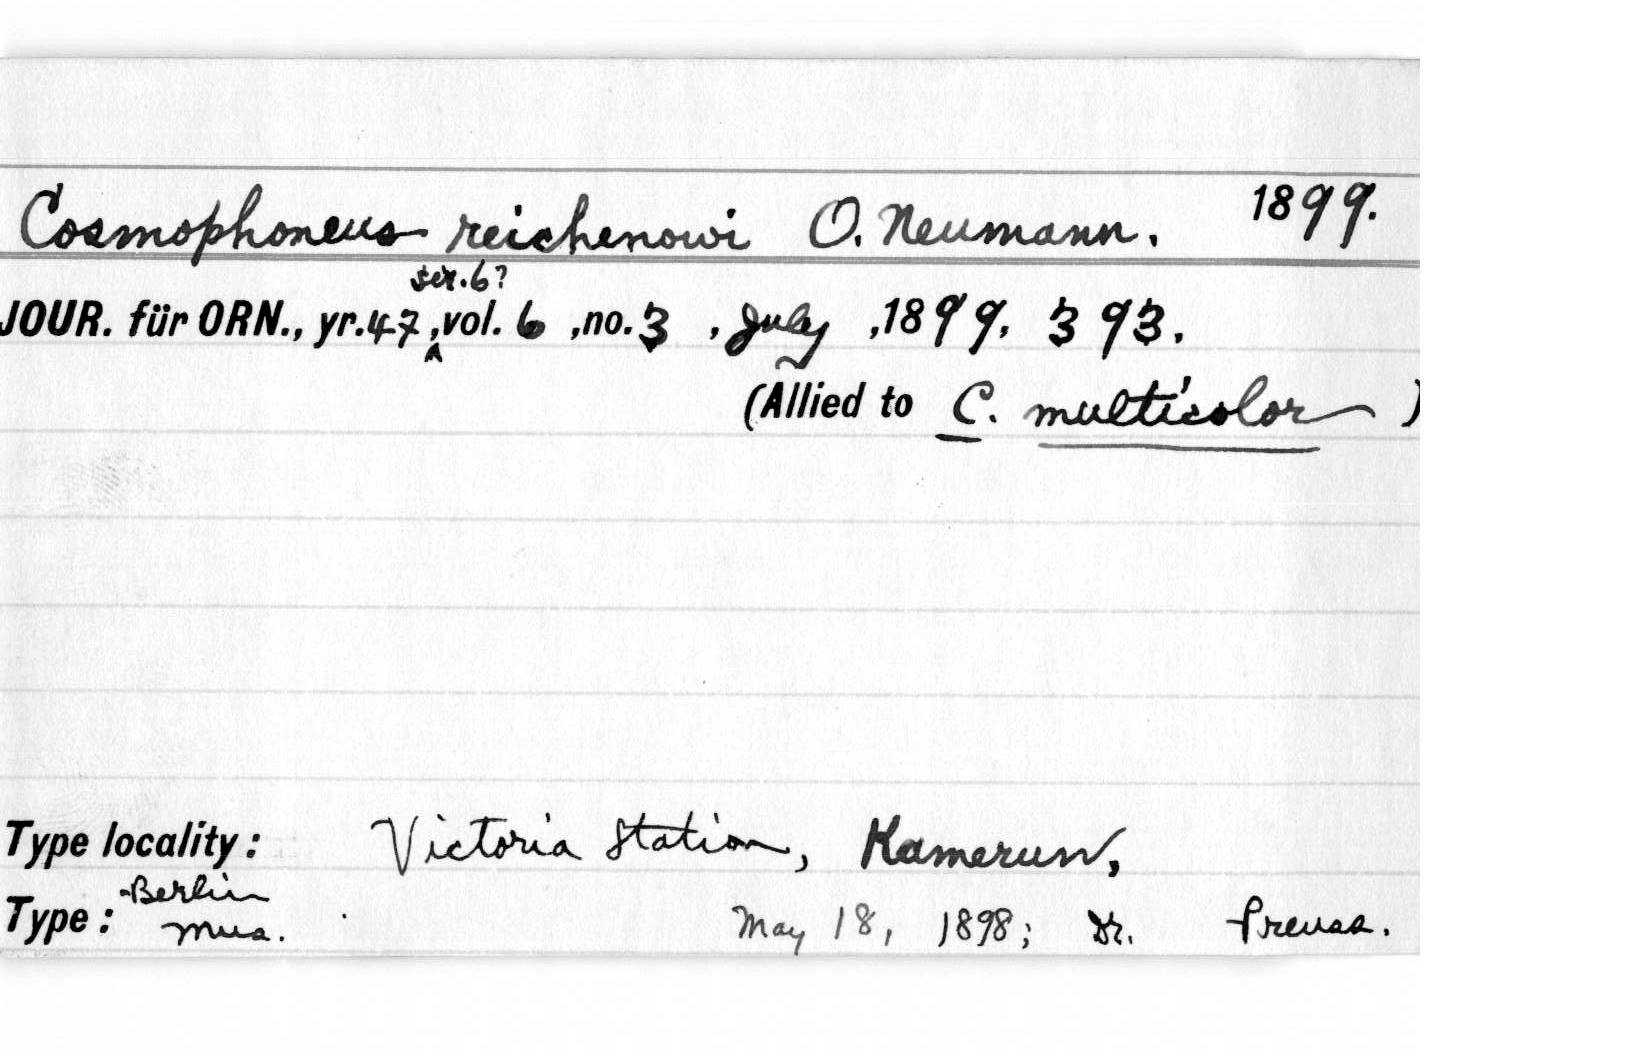 Cosmophoneus reichenowi O. Neumann. 1899.
ser. 6?
JOUR. für ORN., yr. 47 ‸, vol. 6, no. 3, July, 1899, 393.
(Allied to C. multicolor)
Type locality: Victoria Station, Kamerun,
Type: Berlin Mus. May 18, 1898; Dr. Preuss.